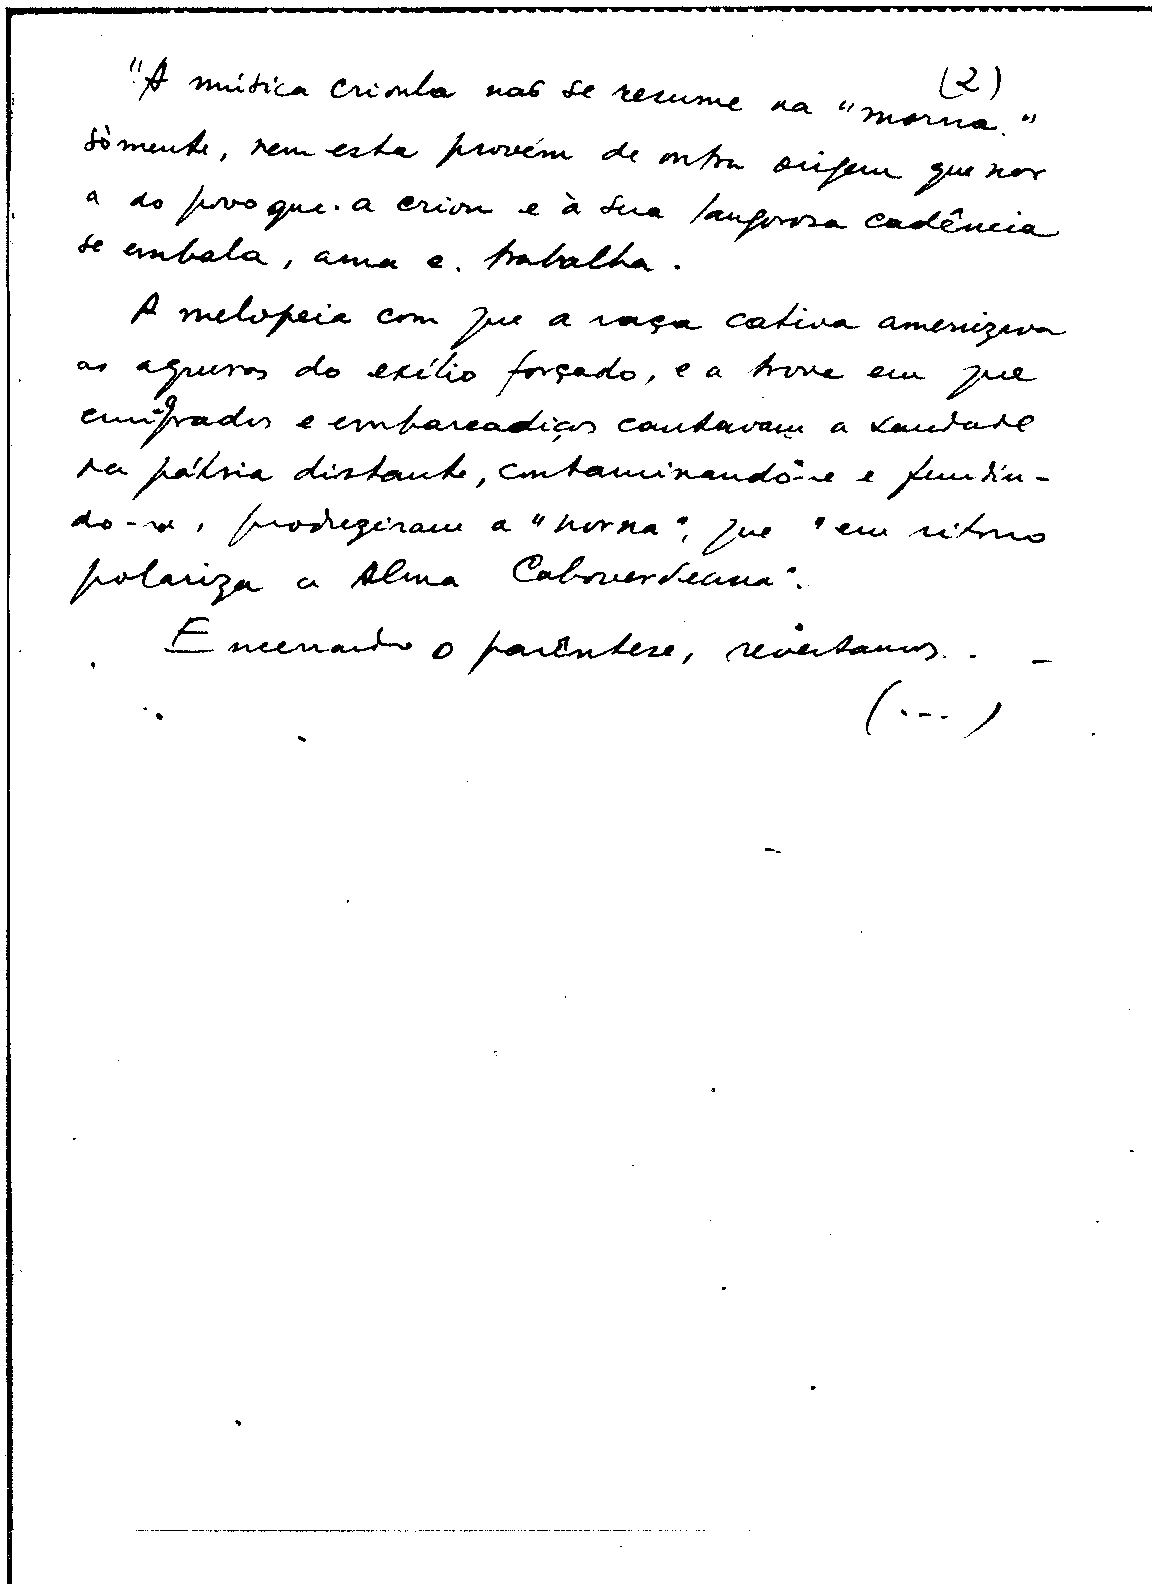 (2)
"A música crioula não se resume na "morna."
sòmente, nem esta provém de outra origem que não
a do povo que a criou e à sua langorosa cadência
se embala, ama e trabalha.
A melopeia com que a raça cativa amenizava
as agruras do exílio forçado, e a trova em que
emigrados e embarcadiços cantavam a saudade
da pátria distante, contaminando-se e fundin-
do-se, produziram a "morna", que "em ritmo
polariza a Alma Caboverdeana".
Encerrando o parêntese, revertamos. . -
(...)